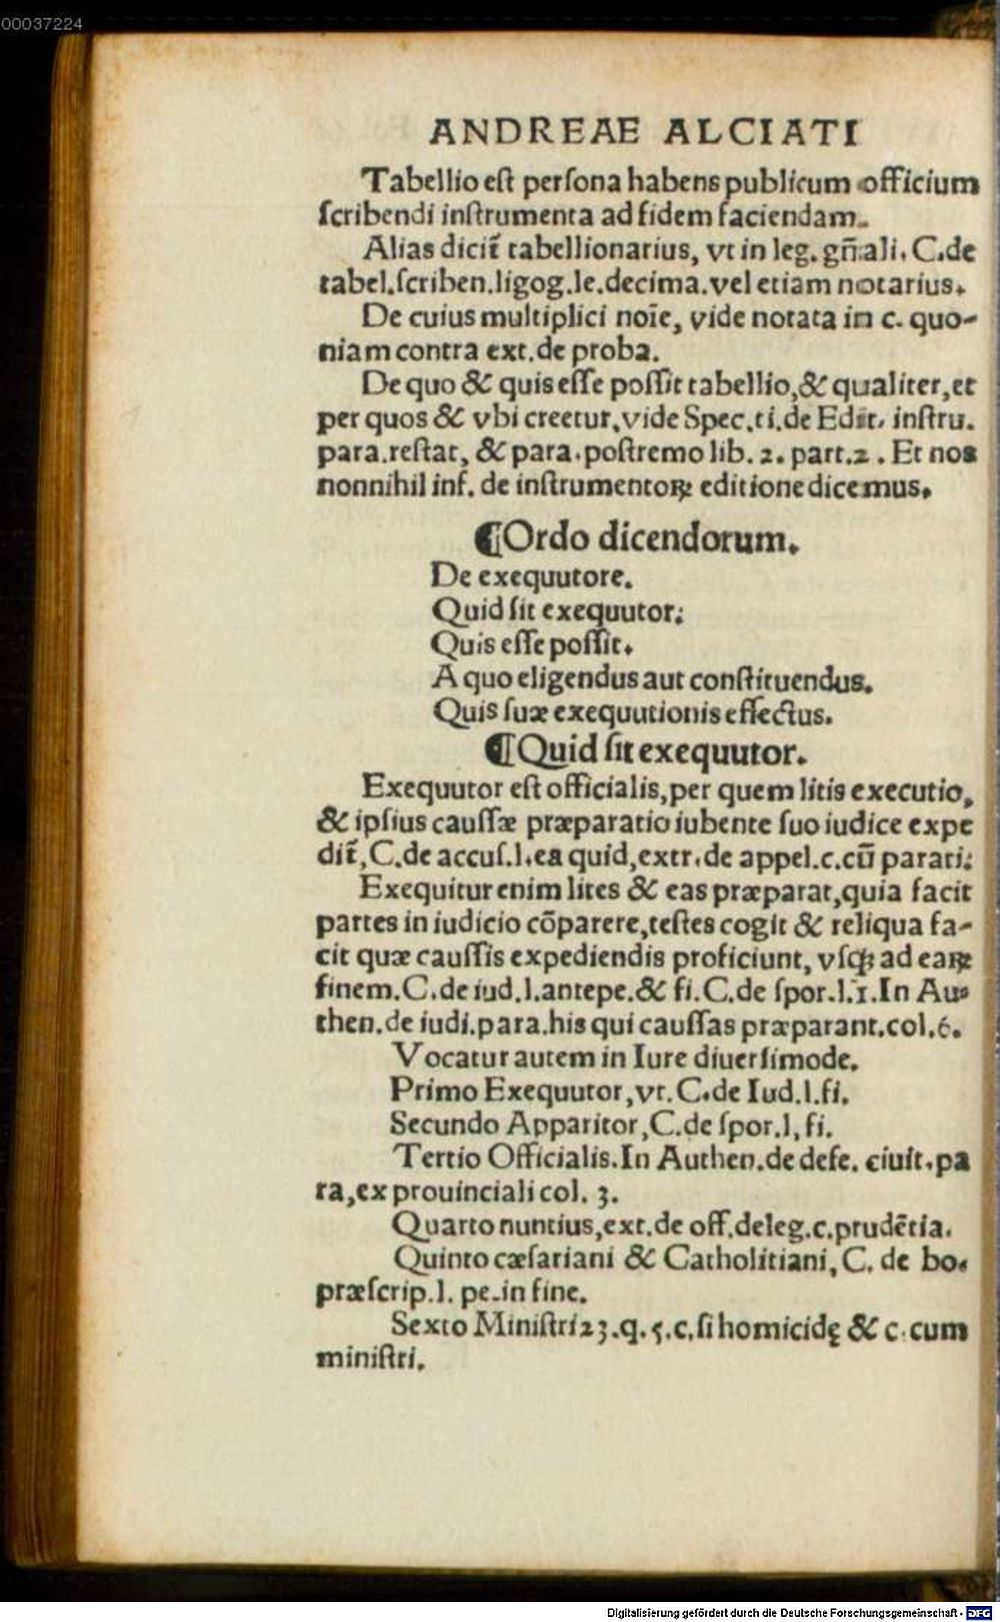 00037224
ANDREAE ALCIATI
Tabellio eſt perſona habens publicum officium
ſcribendi inſtrumenta ad fidem faciendam.
Alias dicit̃ tabellionarius, vt in leg. gñali. C.de
tabel.ſcriben.ligog.le.decima.vel etiam notarius.
De cuius multiplici noīe, vide notata in c. quo-
niam contra ext.de proba.
De quo & quis eſſe poſſit tabellio,& qualiter,et
per quos & vbi creetur,vide Spec.ti.de Edit. inſtru.
para.reſtat, & para.poſtremo lib. 2. part.2. Et nos
nonnihil inf. de inſtrumentoꝝ editione dicemus.
¶Ordo dicendorum.
De exequutore.
Quid ſit exequutor:
Quis eſſe poſſit.
A quo eligendus aut conſtituendus.
Quis ſuæ exequutionis effectus.
¶Quid ſit exequutor.
Exequutor eſt officialis,per quem litis executio,
& ipſius cauſſæ præparatio iubente ſuo iudice expe
dit̃,C.de accuſ.l.ea quid,extr.de appel.c.cū parati:
Exequitur enim lites & eas præparat,quia facit
partes in iudicio cōparere,teſtes cogit & reliqua fa-
cit quæ cauſſis expediendis proficiunt, vſqꝫ ad eaꝝ
finem.C.de iud.l.antepe.& fi.C.de ſpor.l.1.In Au-
then.de iudi.para.his qui cauſſas præparant.col.6.
Vocatur autem in Iure diuerſimode.
Primo Exequutor,vt.C.de Iud.l.fi.
Secundo Apparitor,C.de ſpor.l,fi.
Tertio Officialis.In Authen.de defe. ciuit.pa
ra,ex prouinciali col. 3.
Quarto nuntius,ext.de off.deleg.c.prudētia.
Quinto cæſariani & Catholitiani, C. de bo.
præſcrip.l. pe.in fine.
Sexto Miniſtri 23.q.5.c.ſi homicidę & c.cum
miniſtri.
Digitalisierung gefördert durch die Deutsche Forschungsgemeinschaft - DFG